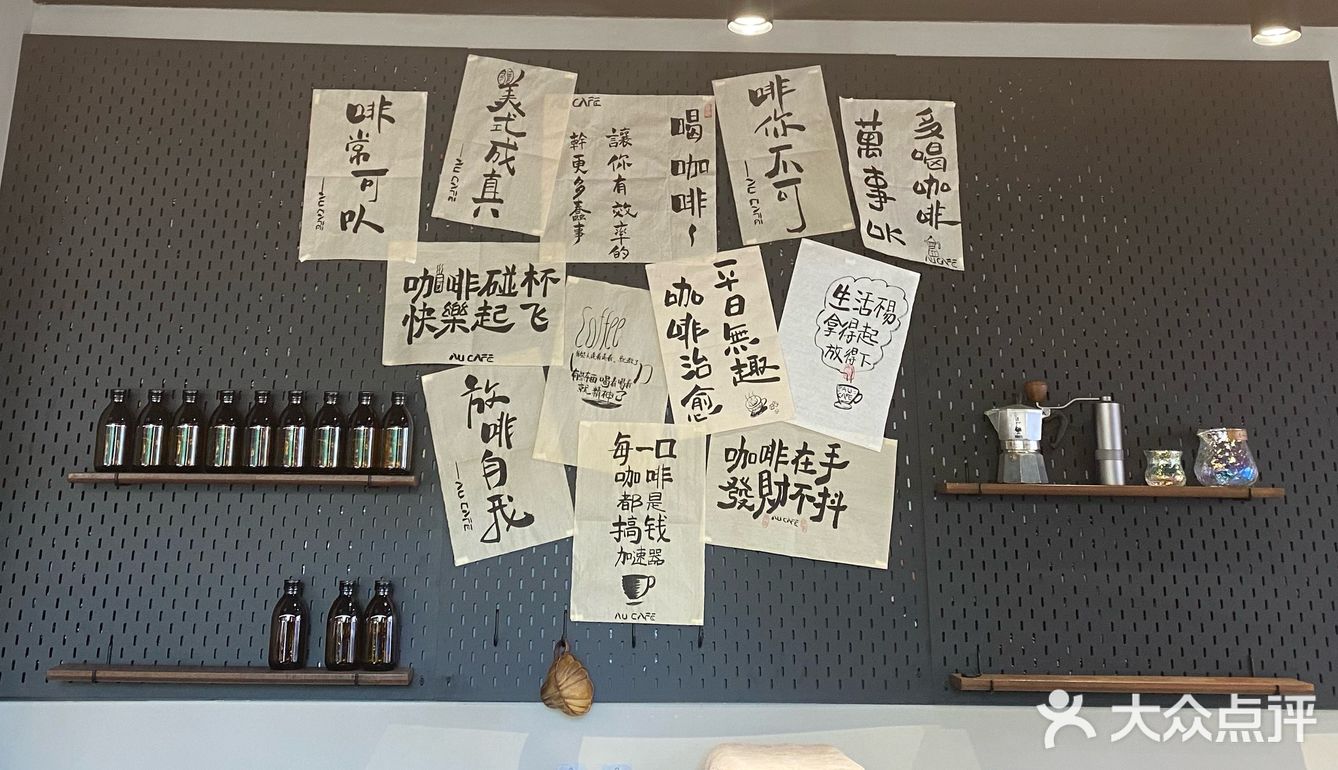 啡常可以
—AU CAFE
美式成真
—AU CAFE
AU CAFE
喝咖啡~
讓你有效率的
幹更多蠢事
啡你不可
—AU CAFE
多喝咖啡
萬事OK
AU CAFE
咖啡碰杯
快樂起飞
AU CAFE
Coffee
有些东西喝着喝着
就精神了
平日無趣
咖啡治愈
生活杨
拿得起
放得下
AU CAFE
放啡自我
—AU CAFE
每一口
咖啡
都是
搞钱
加速器
AU CAFE
咖啡在手
發財不抖
AU CAFE
大众点评